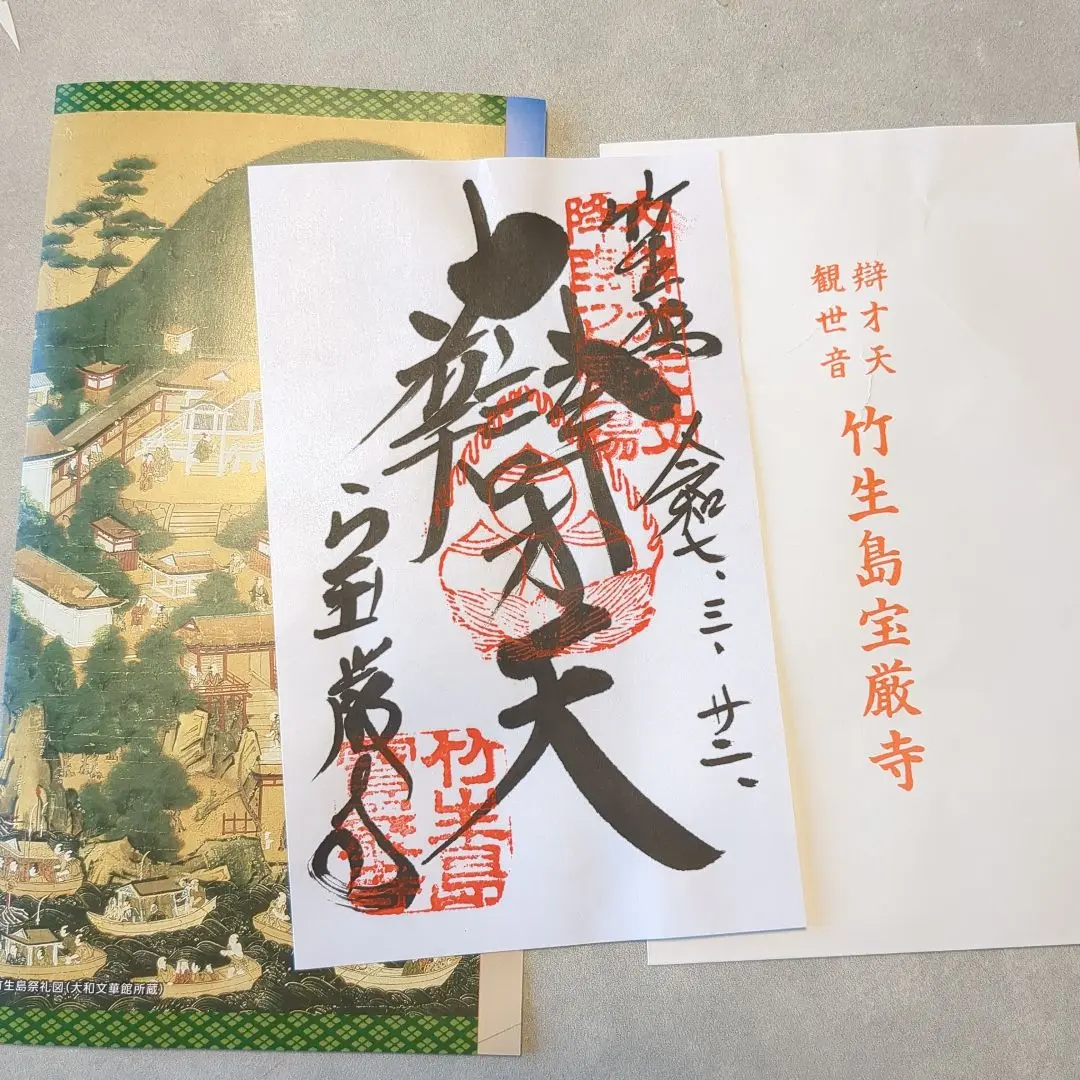 竹生島
令和七、三、廿二、
大辯才天
宝厳寺
竹生島
辯才天
観世音
竹生島宝厳寺
竹生島祭礼図(大和文華館所蔵)